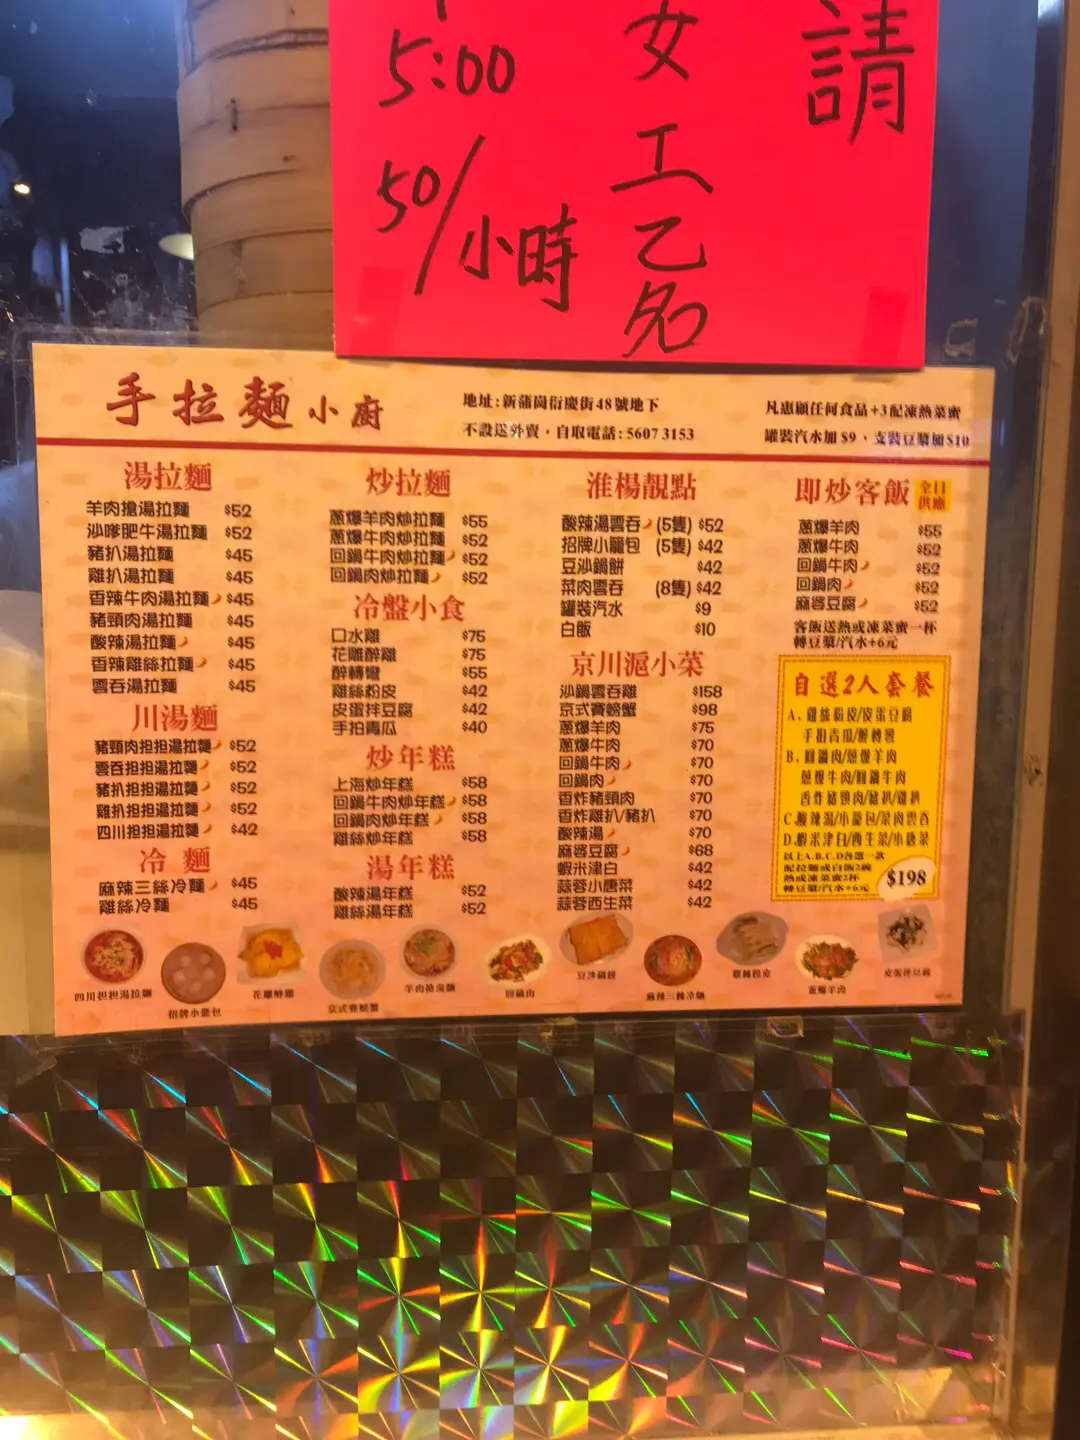 請
女工乙名
5:00
50/小時
手拉麵小廚
地址:新蒲崗衍慶街48號地下
不設送外賣，自取電話:5607 3153
凡惠顧任何食品+3配凍熱菜蜜
罐裝汽水加$9、支裝豆漿加$10
湯拉麵
羊肉搶湯拉麵 $52
沙嗲肥牛湯拉麵 $52
豬扒湯拉麵 $45
雞扒湯拉麵 $45
香辣牛肉湯拉麵 $45
豬頸肉湯拉麵 $45
酸辣湯拉麵 $45
香辣雞絲拉麵 $45
雲吞湯拉麵 $45
川湯麵
豬頸肉担担湯拉麵 $52
雲吞担担湯拉麵 $52
豬扒担担湯拉麵 $52
雞扒担担湯拉麵 $52
四川担担湯拉麵 $42
冷麵
麻辣三絲冷麵 $45
雞絲冷麵 $45
炒拉麵
蔥爆羊肉炒拉麵 $55
蔥爆牛肉炒拉麵 $52
回鍋牛肉炒拉麵 $52
回鍋肉炒拉麵 $52
冷盤小食
口水雞 $75
花雕醉雞 $75
醉轉彎 $55
雞絲粉皮 $42
皮蛋拌豆腐 $42
手拍青瓜 $40
炒年糕
上海炒年糕 $58
回鍋牛肉炒年糕 $58
回鍋肉炒年糕 $58
雞絲炒年糕 $58
湯年糕
酸辣湯年糕 $52
雞絲湯年糕 $52
淮楊靚點
酸辣湯雲吞 (5隻) $52
招牌小籠包 (5隻) $42
豆沙鍋餅 $42
菜肉雲吞 (8隻) $42
罐裝汽水 $9
白飯 $10
京川滬小菜
沙鍋雲吞雞 $158
京式賽螃蟹 $98
蔥爆羊肉 $75
蔥爆牛肉 $70
回鍋牛肉 $70
回鍋肉 $70
香炸豬頸肉 $70
香炸雞扒/豬扒 $70
酸辣湯 $70
麻婆豆腐 $68
蝦米津白 $42
蒜蓉小唐菜 $42
蒜蓉西生菜 $42
即炒客飯 全日供應
蔥爆羊肉 $55
蔥爆牛肉 $52
回鍋牛肉 $52
回鍋肉 $52
麻婆豆腐 $52
客飯送熱或凍菜蜜一杯
轉豆漿/汽水+6元
自選2人套餐
A. 雞絲粉皮/皮蛋豆腐
手拍青瓜/醉轉彎
B. 回鍋肉/蔥爆羊肉
蔥爆牛肉/回鍋牛肉
香炸豬頸肉/豬扒/雞扒
C.酸辣湯/小籠包/菜肉雲吞
D.蝦米津白/西生菜/小唐菜
以上A.B.C.D各選一款
配拉麵或白飯2碗
熱或凍菜蜜2杯
轉豆漿/汽水+6元
$198
四川担担湯拉麵
招牌小籠包
花雕醉雞
京式賽螃蟹
羊肉搶湯麵
回鍋肉
豆沙鍋餅
麻辣三絲冷麵
雞絲粉皮
蔥爆羊肉
皮蛋拌豆腐